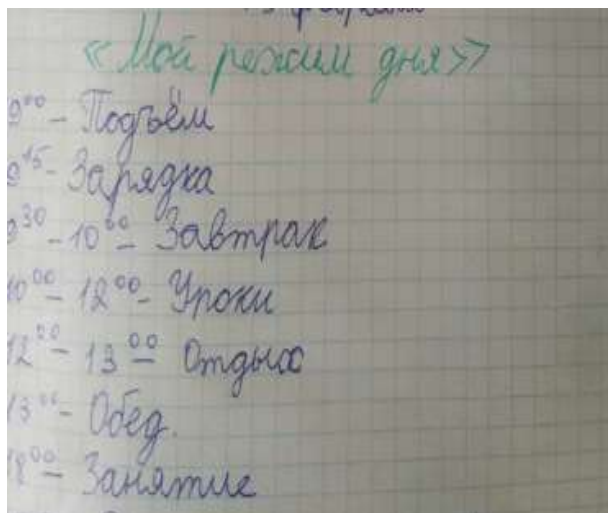 «Мой режим дня»
9⁰⁰ - Подъём
9¹⁵ - Зарядка
9³⁰ - 10⁰⁰ - Завтрак
10⁰⁰ - 12⁰⁰ - Уроки
12⁰⁰ - 13⁰⁰ - Отдых
13⁰⁰ - Обед.
18⁰⁰ - Занятие